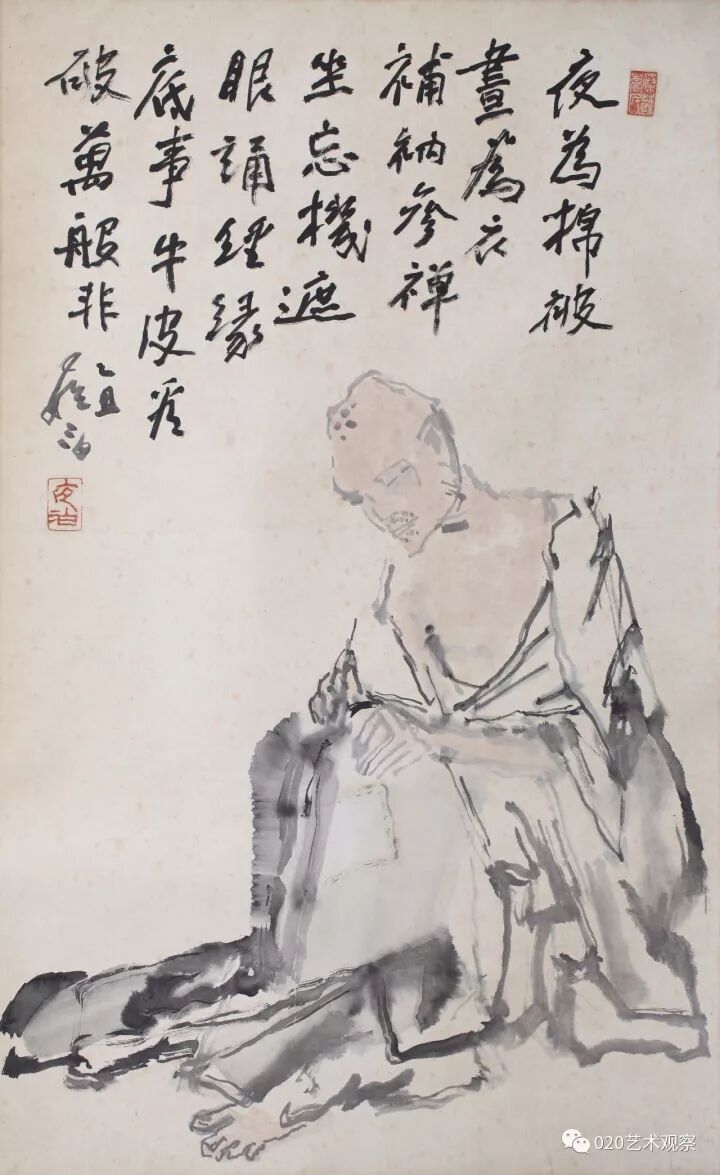 夜為棉被
晝為衣
補衲參禪
坐忘機遮
眼誦經緣
底事牛皮看
破萬般非
乙丑
夜泊
020艺术观察